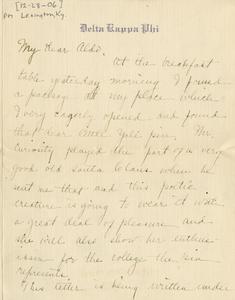 [12-28-06]
pos Lexington, Ky.
Delta Kappa Phi
My dear Aldo.
At the breakfast
table yesterday morning I found
a package at my place which
I very eagerly opened and found
that dear little Yale pin. Mr.
Curiosity played the part of a very
good old Santa Claus when he
sent me that and this poetic
creature is going to wear it with
a great deal of pleasure and
she will also show her enthus-
iasm for the college the pin
represents.
This letter is being written under